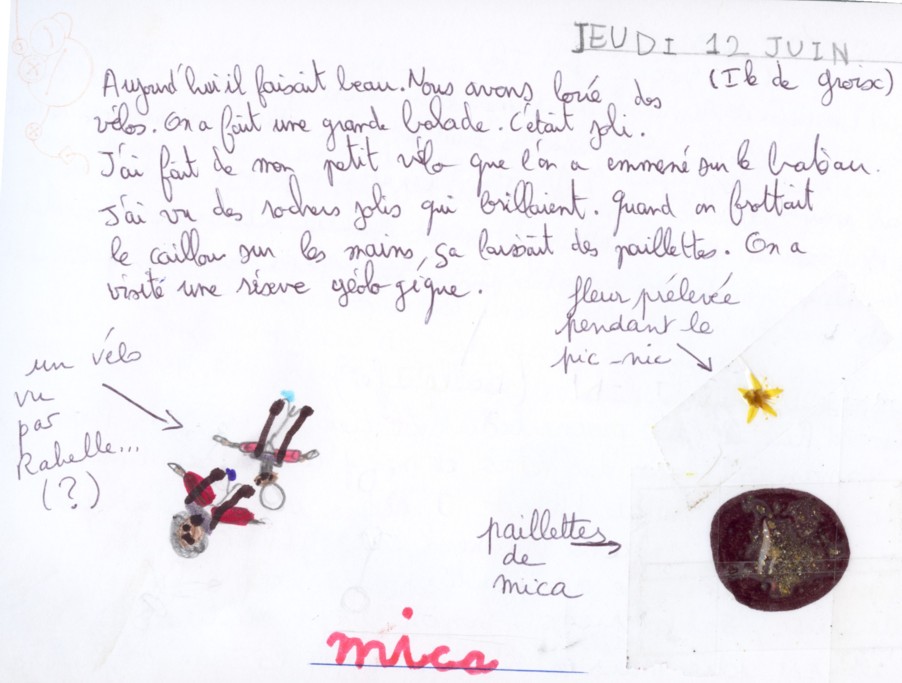 JEUDI 12 JUIN
(Ile de groix)
Aujourd'hui il faisait beau. Nous avons loué des
vélos. On a fait une grande balade. C'était joli.
J'ai fait de mon petit vélo que l'on a emmené sur le bateau.
J'ai vu des rochers jolis qui brillaient. Quand on frottait
le caillou sur les mains, ça laissait des paillettes. On a
visité une réserve géologique.
fleur prélevée
pendant le
pic-nic
un vélo
vu
par
Kahelle...
(?)
paillettes
de
mica
mica